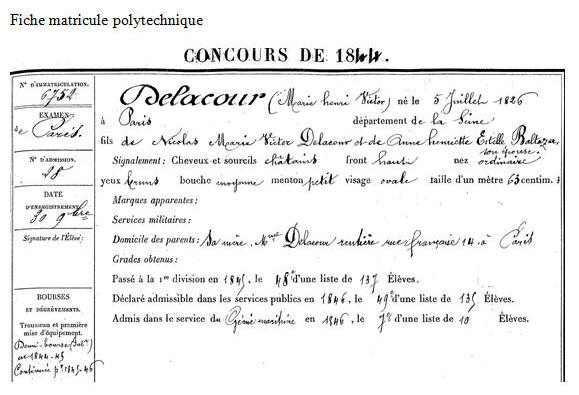 Fiche matricule polytechnique
CONCOURS DE 1844.
N° D'IMMATRICULATION.
6752
EXAMEN
de Paris.
N° D'ADMISSION.
28
DATE
D'ENREGISTREMENT.
30 9bre
Signature de l'Élève:
BOURSES
ET DÉGRÈVEMENTS.
Trousseau et première
mise d'équipement.
Demi-bourse
en 1844-45
Continuée pr 1845-46
Delacour (Marie henri Victor) né le 5 Juillet 1826
à Paris département de la Seine
fils de Nicolas Marie Victor Delacour et de Anne henriette Estelle Baltazar,
son épouse.
Signalement: Cheveux et sourcils châtains front haut nez ordinaire
yeux bruns bouche moyenne menton petit visage ovale taille d'un mètre 63 centim.:
Marques apparentes:
Services militaires:
Domicile des parents: Sa mère, Mme Delacour rentière rue française 14. à Paris
Grades obtenus:
Passé à la 1re division en 1845, le 48e d'une liste de 137 Élèves.
Déclaré admissible dans les services publics en 1846, le 49e d'une liste de 135 Élèves.
Admis dans le service du Génie maritime en 1846, le 7e d'une liste de 10 Élèves.